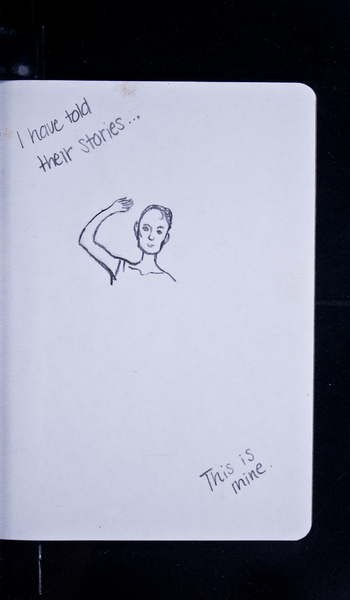 I have told
their stories...
This is
mine.